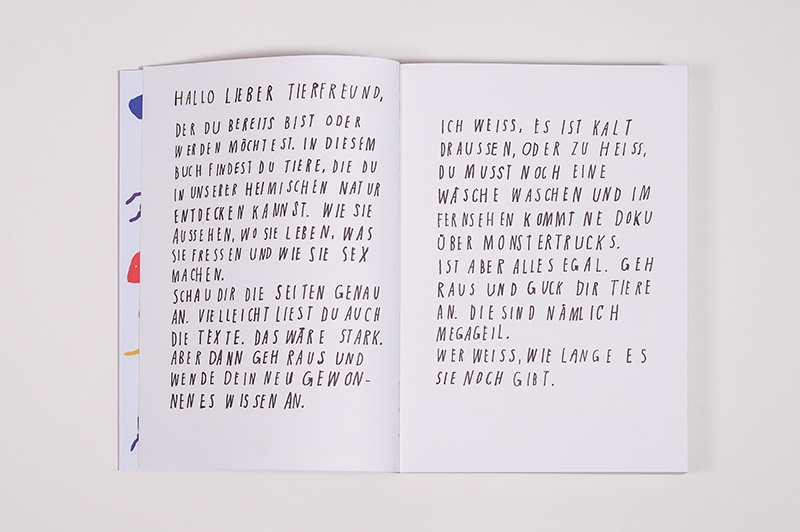 HALLO LIEBER TIERFREUND,
DER DU BEREITS BIST ODER
WERDEN MÖCHTEST. IN DIESEM
BUCH FINDEST DU TIERE, DIE DU
IN UNSERER HEIMISCHEN NATUR
ENTDECKEN KANNST. WIE SIE
AUSSEHEN, WO SIE LEBEN, WAS
SIE FRESSEN UND WIE SIE SEX
MACHEN.
SCHAU DIR DIE SEITEN GENAU
AN. VIELLEICHT LIEST DU AUCH
DIE TEXTE. DAS WÄRE STARK.
ABER DANN GEH RAUS UND
WENDE DEIN NEU GEWON-
NENES WISSEN AN.
ICH WEISS, ES IST KALT
DRAUSSEN, ODER ZU HEISS,
DU MUSST NOCH EINE
WÄSCHE WASCHEN UND IM
FERNSEHEN KOMMT NE DOKU
ÜBER MONSTERTRUCKS.
IST ABER ALLES EGAL. GEH
RAUS UND GUCK DIR TIERE
AN. DIE SIND NÄMLICH
MEGAGEIL.
WER WEISS, WIE LANGE ES
SIE NOCH GIBT.